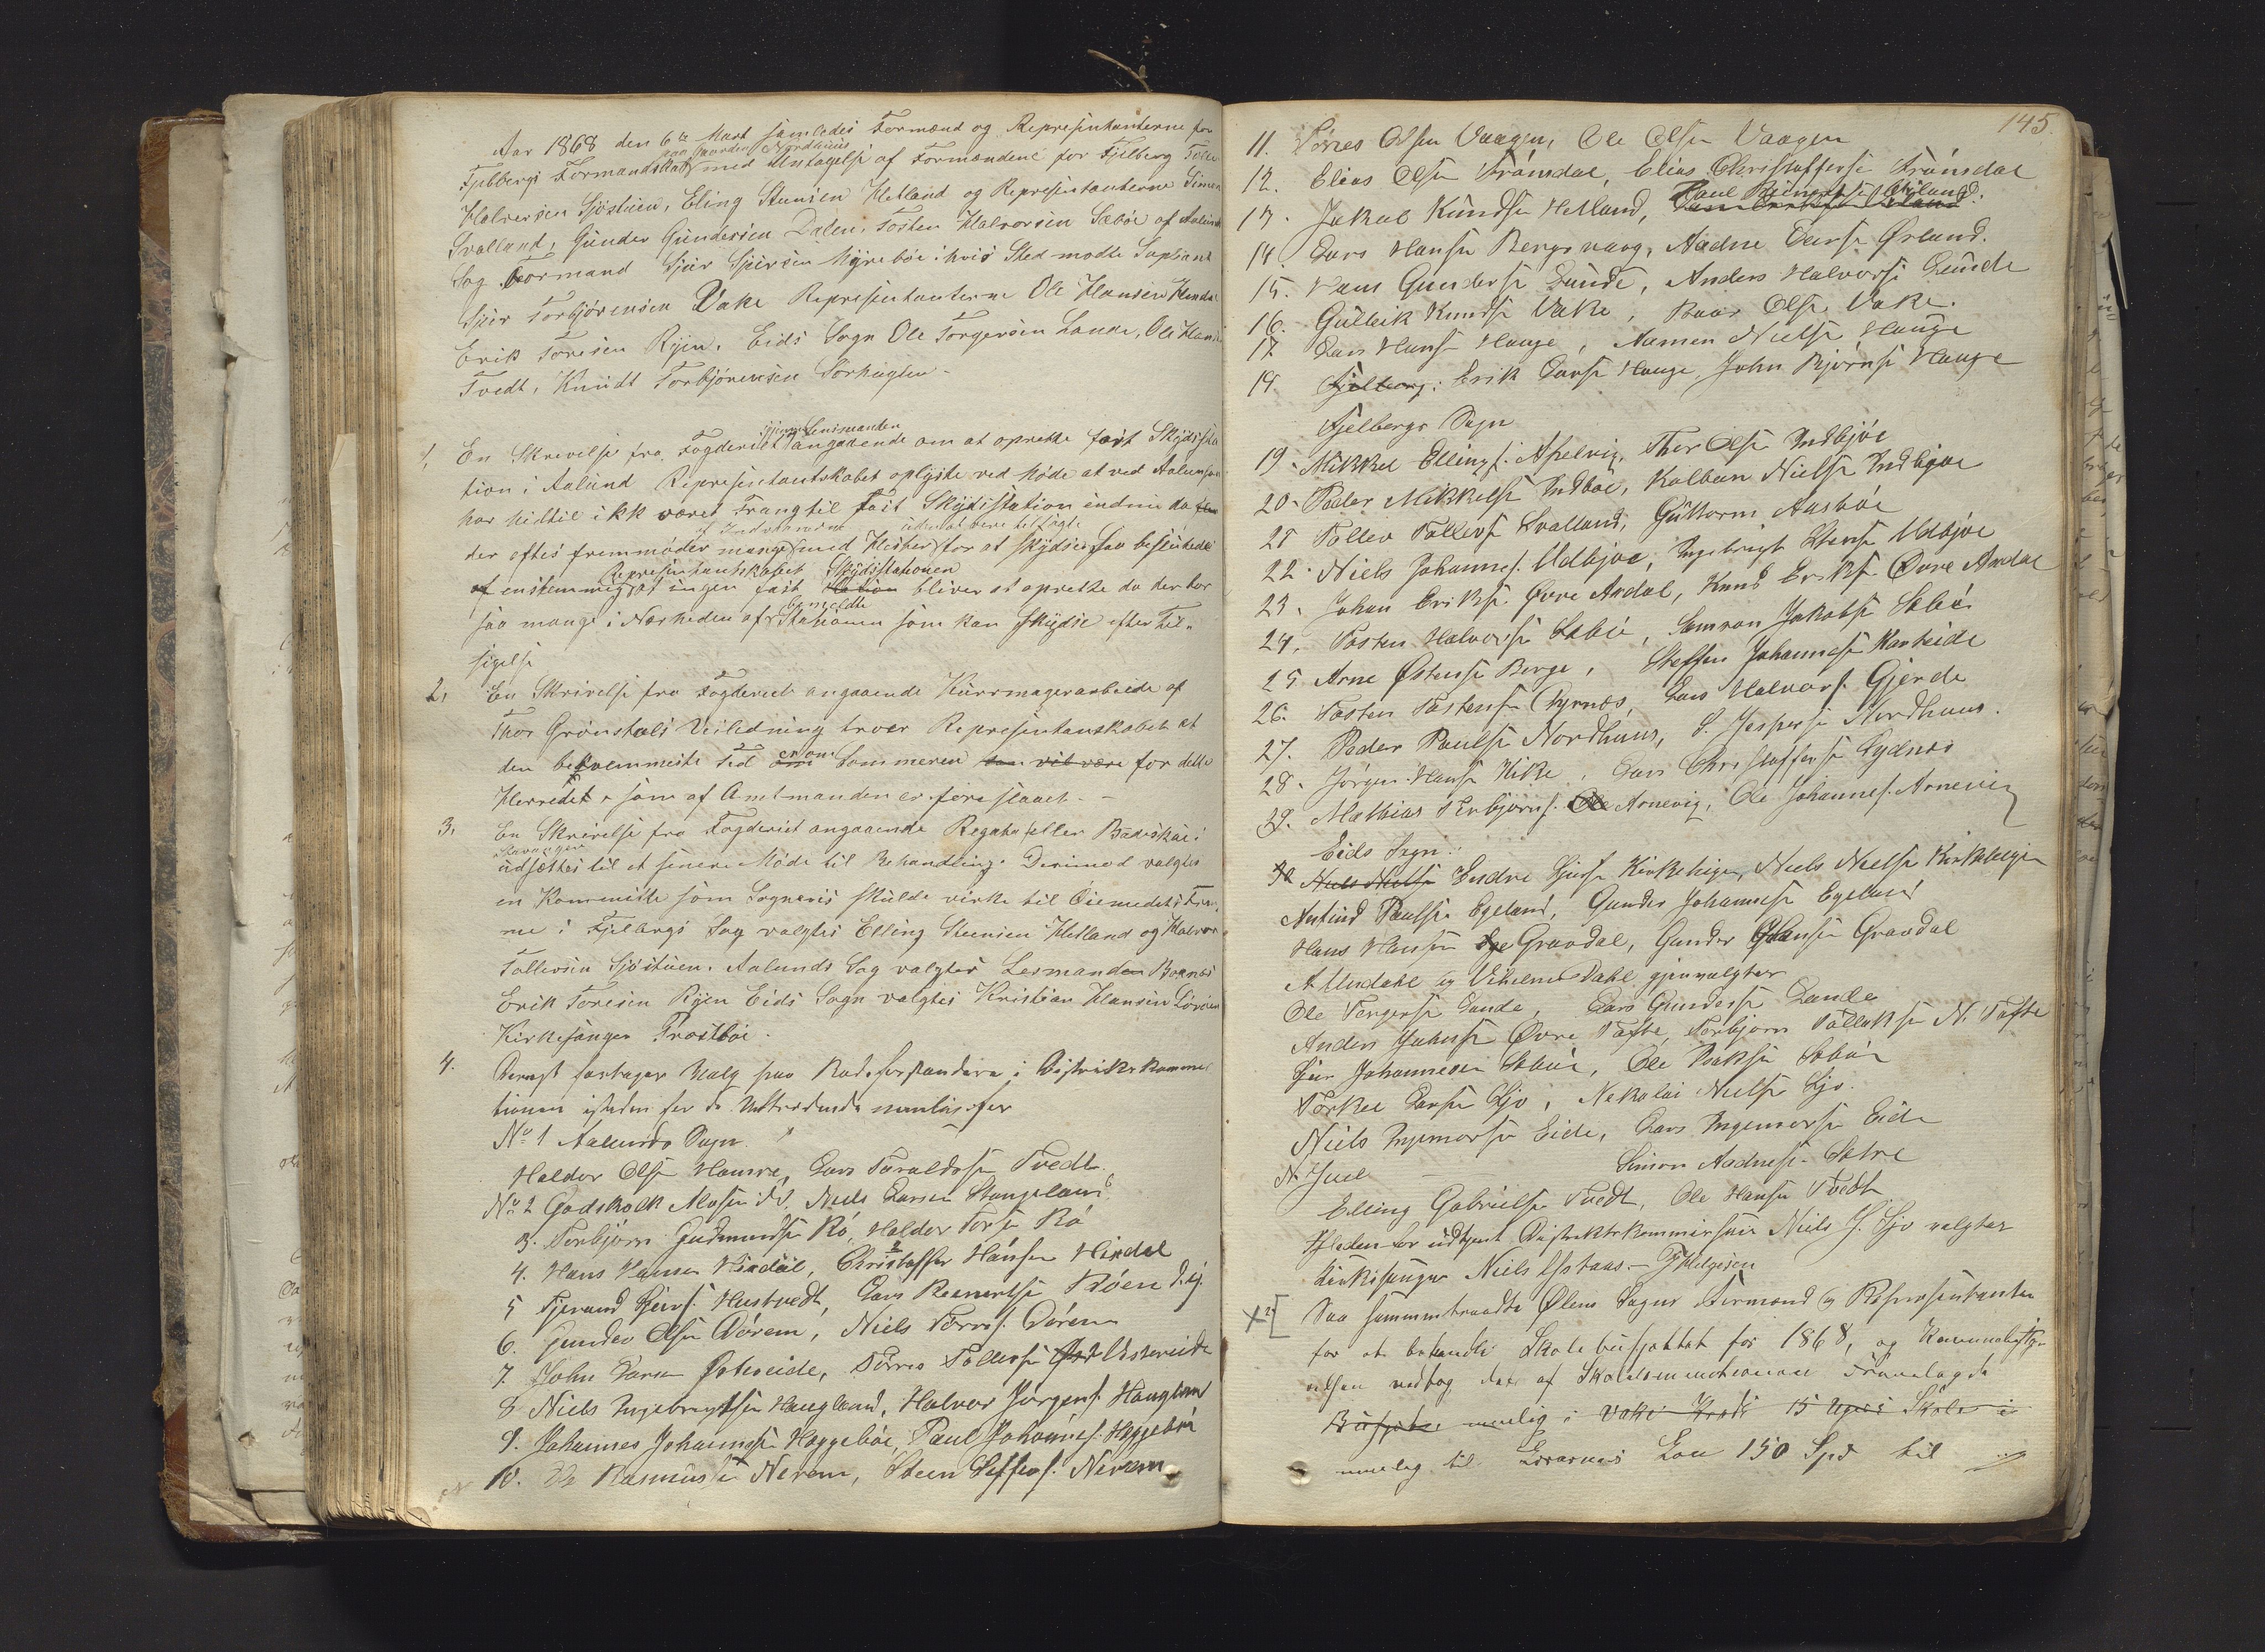 Aar 1868 den 6te Mart samledes Formænd og Representanterne for
paa Gaarden Nordhuus
Fjelbergs Formandskab med Untagelse af Formændene for Fjelberg
Halversen Sjöstuen, Eling Steensen Hetland og Representanterne Simen
Svalland, Gunder Gundersen Dalen, Tosten Halvorsen Sæböe af Aalunds
Sog Formand Sjur Sjursen Myreböe i hvis Sted mødte Supliant
Sjur Torbjörensen Vake Representanterne Ole Hansen
Erik Toresen Ryen. Eids Sogn Ole Torgersen Lande, Ole Hans
Tvedt, Knudt Torbjörensen
1, En Skrivelse fra Fogderiet gjennem Lensmanden angaaende om at oprette fast Skydssta
tion i Aalund Representantskabet oplyste ved Møde at ved Aalundsøen
har hidtil ikk været Trang til fast Skydsstation endnu da
af Indvaanerne uden at være tilsagte
der oftes fremmøder mange med Hester for at skydse Saa besluttedes
Representantskabet Skydsstationen
af enstemmig at ingen fast Station bliver at oprette da der bor
bemeldte
saa mange i Nærheden af Stationen som kan skydse efter Til-
sigelse
2, En Skrivelse fra Fogderiet angaaende Kurvmagerarbeide af
Thor Grönstads Veiledning troer Representanskabet at
den bekvemmeste Tid er om Sommeren som vil være for dette
Herredet som af Amtmanden er foreslaaet.
3, En Skrivelse fra Fogderiet angaaende Regata eller Baadskue i
Stavanger
udsættes til et senere Møde til Behandling. Derimod valgtes
en Kommitte som Sognevis skulde virke til Öiemedets Frem-
me i Fjelbergs Sog valgtes Elling Steensen Hetland og Halvor
Tollevsen Sjöstuen. Aalunds Sog valgtes Lesmanden Boknæs
Erik Toresen Ryen Eids Sogn valgtes Kristian Hansen
Kirkesanger Frostböe.
4. Dernæst foretages Valg paa Rodeforstandere i Distriktskommis
tionen isteden for de Udtrædende nemlig: for
No 1 Aalunds Sogn.
Haldor Olsen Hamre, Lars Taraldsen Tvedt.
No 2 Godskalk Monsen, Niels Larsen Stangeland
3. Torbjörn Gudmundsen Rö, Haldor Torsen Rö
4. Hans Hansen Hindal, Christoffer Hansen Hindal
5 Tjerand Sjurs. Hustvedt, Lars Reinertsen
6. Gunder Olsen Dörem, Niels Torres. Dörem
7. John Larsen Østereide, Torres Tollevsen Østereide
8 Niels Ingebrigtsen Haugland, Halvor Jørgens. Haugland
9. Johannes Johannesen Høggeböe, Paul Johannes. Høggeböe
10. Ole Rasmussen Nerem, Steen Steffens. Nerem
145.
11. Torres Olsen Vaagen, Ole Olsen Vaagen
12. Elias Olsen Trönsdal, Elias Christoffersen Trönsdal
13. Jakob Knudsen Hetland, Paul Reinertsen Hetland.
14 Lars Hansen Bergsvaag, Aadne Larsen Ørland.
15. Hans Gundersen Lunde, Anders Halvorsen Lunde
16. Gulleik Knudsen Vake, Baar Olsen Vake.
17 Lars Hansen Hauge, Aamen Nielsen Hauge
18. Fjelberg: Erik Larsen Hauge, John Bjørnsen Hauge
Fjelbergs Sogn
19. Mikkel Ellings. Apelvig, Thor Olsen Indbjöe
20. Peder Mikkelsen Indböe, Kolben Nielsen Indbjöe
21 Tollev Tollevsen Svalland, Guttorm Aasböe
22. Niels Johannes. Udbjoe, Ingebrigt Steens. Udbjoe
23. Johan Eriksen Øvre Aardal, Knud Eriksen Øvre Aardal
24. Tosten Halvorsen Sæböe, Samson Jakobsen Sæböe
25 Arne Østensen Berge, Steffen Johannesen Kaarteide
26. Tosten Tostensen, Lars Halvors. Gjerde
27. Peder Paulsen Nordhuus, S. Jespersen Nordhuus.
28. Jørgen Hansen Kike, Lars Christoffersen Sydnæs
29. Mathias Torbjørns. Ole Arnevig, Ole Johannes. Arnevig
Eids Sogn:
30 Niels Nielsen Endre Sjursen Kirkehigen, Niels Nielsen Kirkehigen
Amund Paulsen Egeland, Gunder Johannesen Egeland
Hans Hansen Gravdal, Gunder Hansen Gravdal
A Utvdahl og Vilhelm Dahl gjenvalgtes
Ole Torgersen Lande, Lars Gundersen Lande
Anders Jakobsen Øvre Tafte, Torbjørn Tollaksen N. Tafte
Sjur Johannesen Sæböe, Ole Isaksen Sæböe
Torkel Larsen Ljo, Nikolai Nielsen Ljo.
Niels Ingemorsen Eide, Lars Ingemorsen Eide
N. Juel Simon Aadnesen Sætre
Elling Gabrielsen Tvedt, Ole Hansen Tvedt
Isteden for udtjent Distriktskommissær Niels S. Ljo valgtes
Kirkesanger Niels Opstaas - J Helgesen
Saa sammentraadte Ølens Sogns Formænd og Representanter
for at behandle Skolebudsjettet for 1868, og Kommunebesty-
relsen vedtog det af Skolekommissionen fremlagde
Budsjet nemlig i Vake Kreds 15 Ugers Skole i
nemlig til Lærernes Løn 150 Spd til